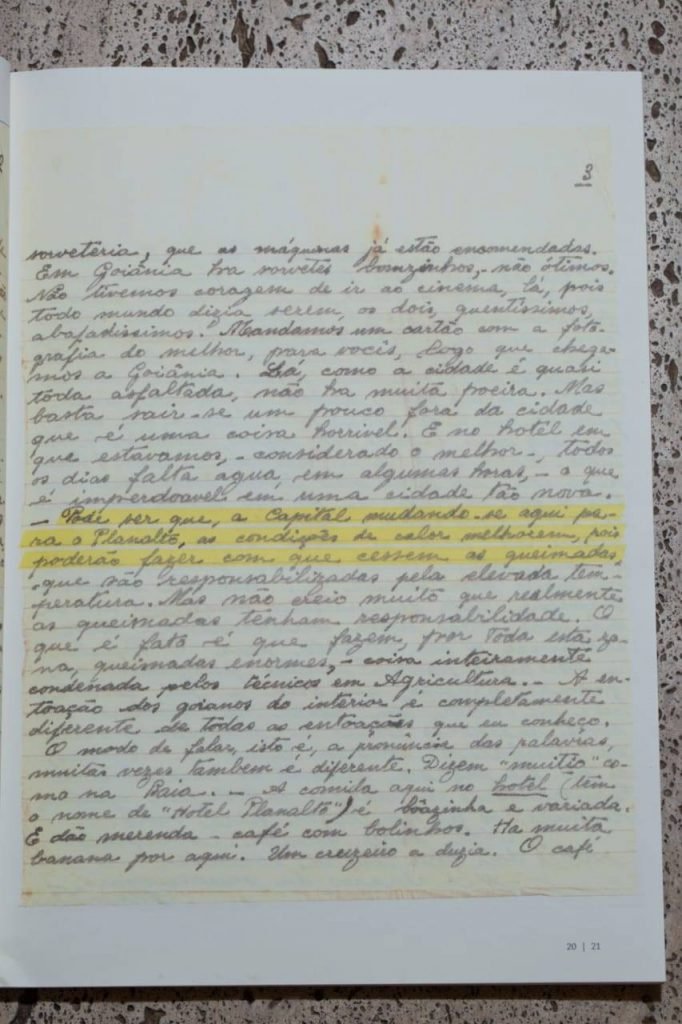 3
sorveteria, que as máquinas já estão encomendadas.
Em Goiânia ha sorvetes bomzinhos, - não ótimos.
Não tivemos coragem de ir ao cinema, lá, pois
todo mundo dizia serem, os dois, quentíssimos,
abafadissimos. Mandamos um cartão com a foto-
grafia do melhor, para vocês, logo que chega-
mos a Goiânia. Lá, como a cidade é quasi
toda asfaltada, não ha muita poeira. Mas
basta sair-se um pouco fora da cidade
que é uma coisa horrivel. E no hotél em
que estavamos, - considerado o melhor -, todos
os dias falta agua, em algumas horas, - o que
é imperdoavel em uma cidade tão nova.
- Pode ser que, a Capital mudando-se aqui pa-
ra o Planalto, as condições de calor melhorem, pois
poderão fazer com que cessem as queimadas
- que são responsabilizadas pela elevada tem-
peratura. Mas não creio muito que realmente
as queimadas tenham responsabilidade. O
que é fato é que fazem, por toda esta zo-
na, queimadas enormes, - coisa inteiramente
condenada pelos técnicos em Agricultura. - A en-
toação dos goianos do interior é completamente
diferente de todas as entoações que eu conheço.
O modo de falar, isto é, a pronúncia das palavras,
muitas vezes tambem é diferente. Dizem "muitio" co-
mo na Baia. - A comida aqui no hotel (tem
o nome de "Hotel Planalto") é bôazinha e variada.
E dão merenda - café com bolinhos. Ha muita
banana por aqui. Um cruzeiro a duzia. O café
20 | 21